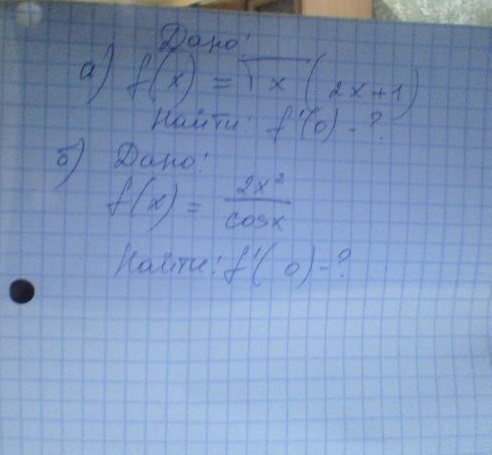 Дано:
а) f(x) = √x (2x+1)
Найти: f'(0) - ?
б) Дано:
f(x) = 2x²/cosx
Найти: f'(0) - ?